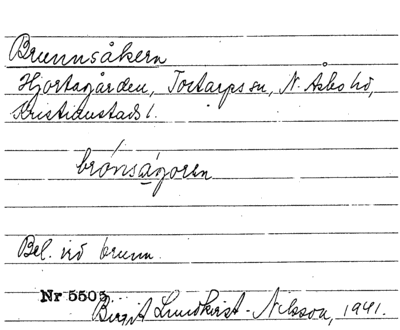 Brunnsåkern
Hjortagården, Tostarps sn, N. Åsbo hd,
Kristianstads l.
brónsågoren
Bel. vid brunn.
Nr 5505
Birgit Lundkvist-Nilsson, 1941.